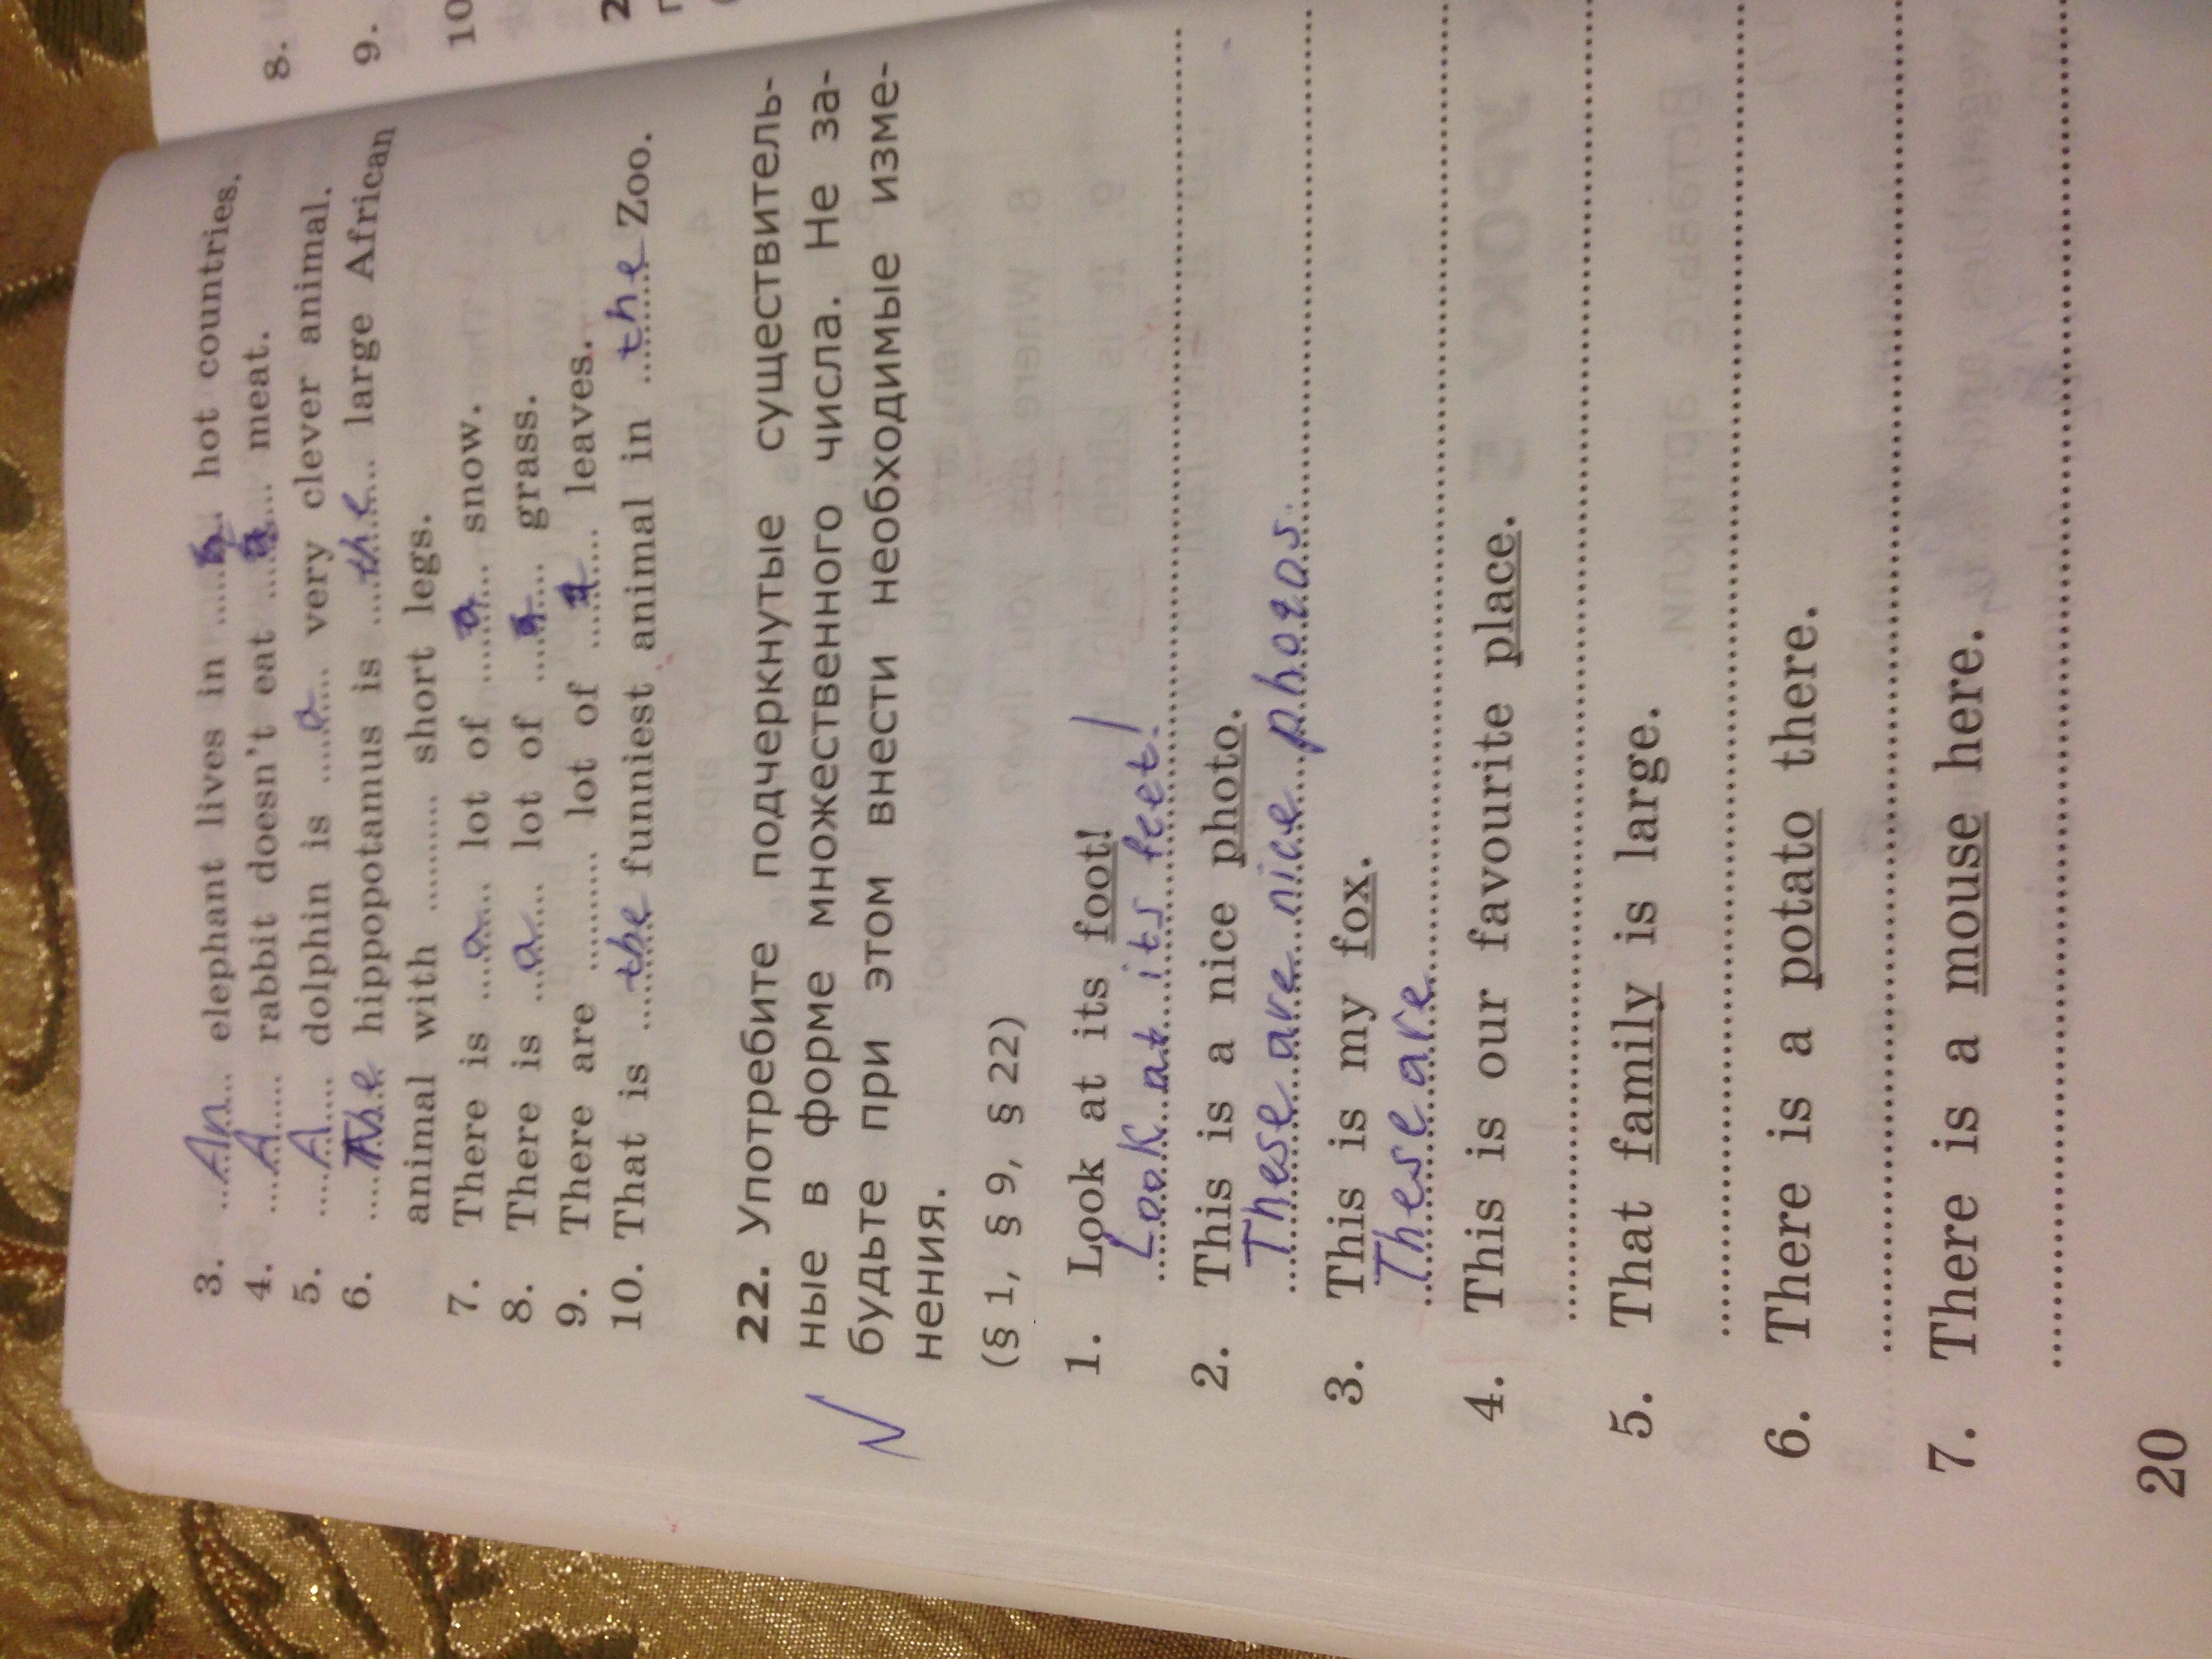 3. ....An... elephant lives in ......... hot countries.
4. ....A..... rabbit doesn't eat ......... meat.
5. ....A.... dolphin is ....a.... very clever animal.
6. ....The hippopotamus is ....the.... large African
animal with .......... short legs.
7. There is ....a.... lot of ......... snow.
8. There is ...a.... lot of ......... grass.
9. There are .......... lot of ......... leaves.
10. That is ....the funniest animal in ....the Zoo.
22. Употребите подчеркнутые существитель-
ные в форме множественного числа. Не за-
будьте при этом внести необходимые изме-
нения.
(§ 1, § 9, § 22)
1. Look at its foot!
Look at its feet!
2. This is a nice photo.
These are nice photos.
3. This is my fox.
These are
4. This is our favourite place.
5. That family is large.
6. There is a potato there.
7. There is a mouse here.
20
8.
9.
10
2